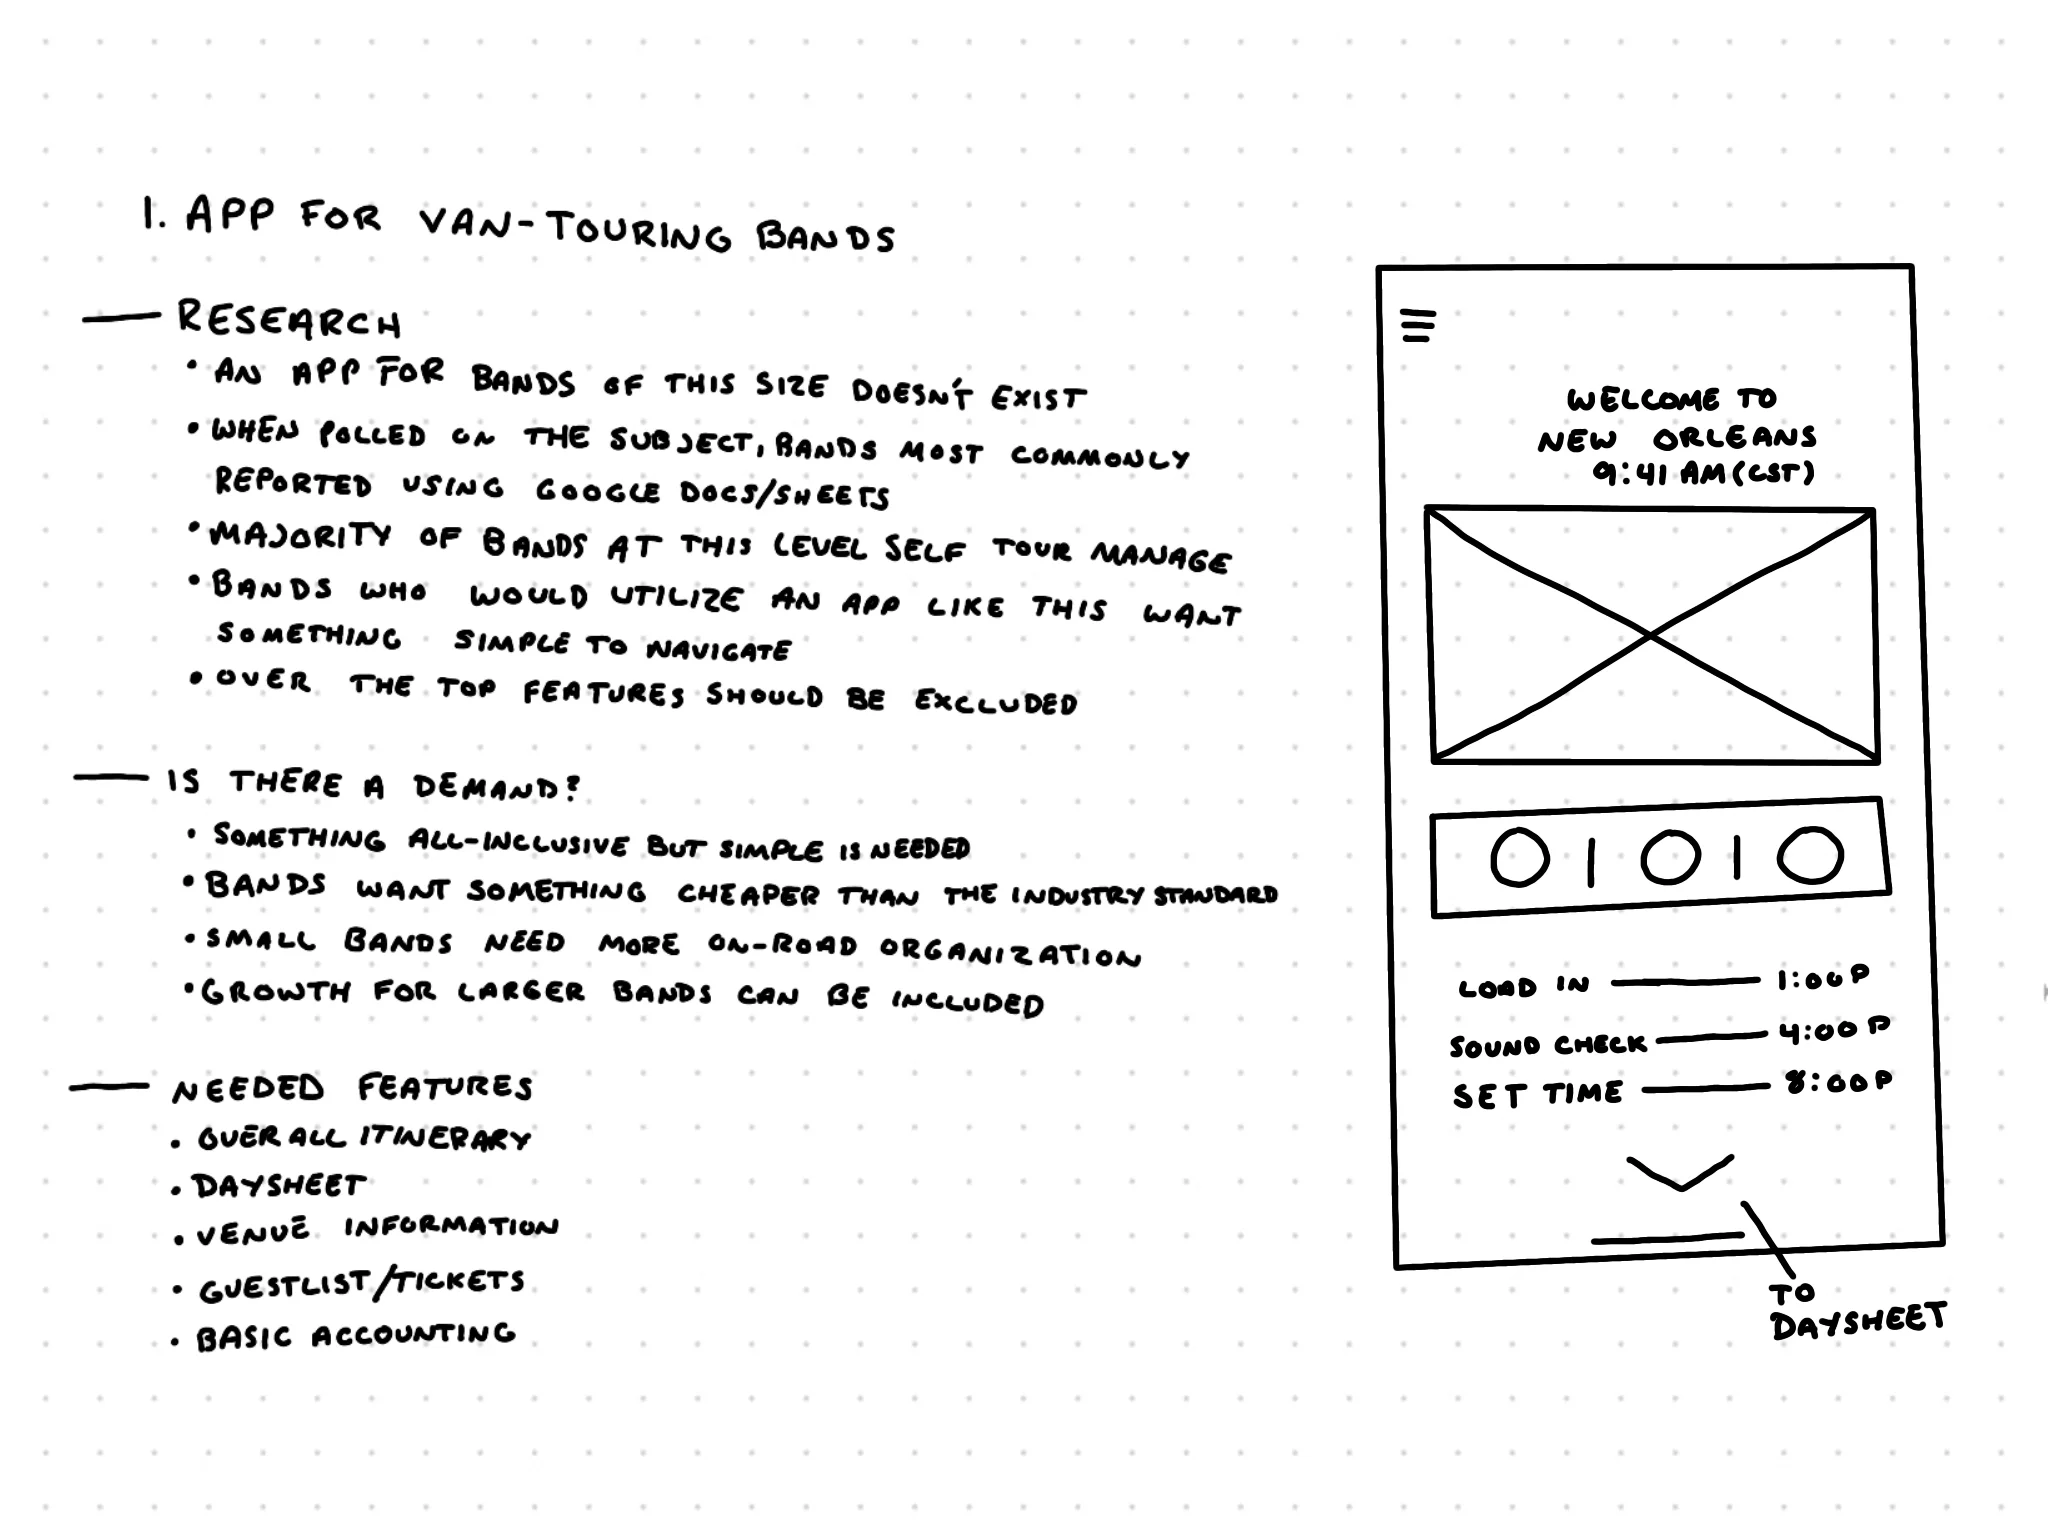 1. APP FOR VAN-TOURING BANDS
— RESEARCH
• AN APP FOR BANDS OF THIS SIZE DOESN'T EXIST
• WHEN POLLED ON THE SUBJECT, BANDS MOST COMMONLY
REPORTED USING GOOGLE DOCS/SHEETS
• MAJORITY OF BANDS AT THIS LEVEL SELF TOUR MANAGE
• BANDS WHO WOULD UTILIZE AN APP LIKE THIS WANT
SOMETHING SIMPLE TO NAVIGATE
• OVER THE TOP FEATURES SHOULD BE EXCLUDED
— IS THERE A DEMAND?
• SOMETHING ALL-INCLUSIVE BUT SIMPLE IS NEEDED
• BANDS WANT SOMETHING CHEAPER THAN THE INDUSTRY STANDARD
• SMALL BANDS NEED MORE ON-ROAD ORGANIZATION
• GROWTH FOR LARGER BANDS CAN BE INCLUDED
— NEEDED FEATURES
• OVERALL ITINERARY
• DAYSHEET
• VENUE INFORMATION
• GUESTLIST/TICKETS
• BASIC ACCOUNTING
WELCOME TO
NEW ORLEANS
9:41 AM (CST)
LOAD IN — 1:00P
SOUND CHECK — 4:00P
SET TIME — 8:00P
TO
DAYSHEET